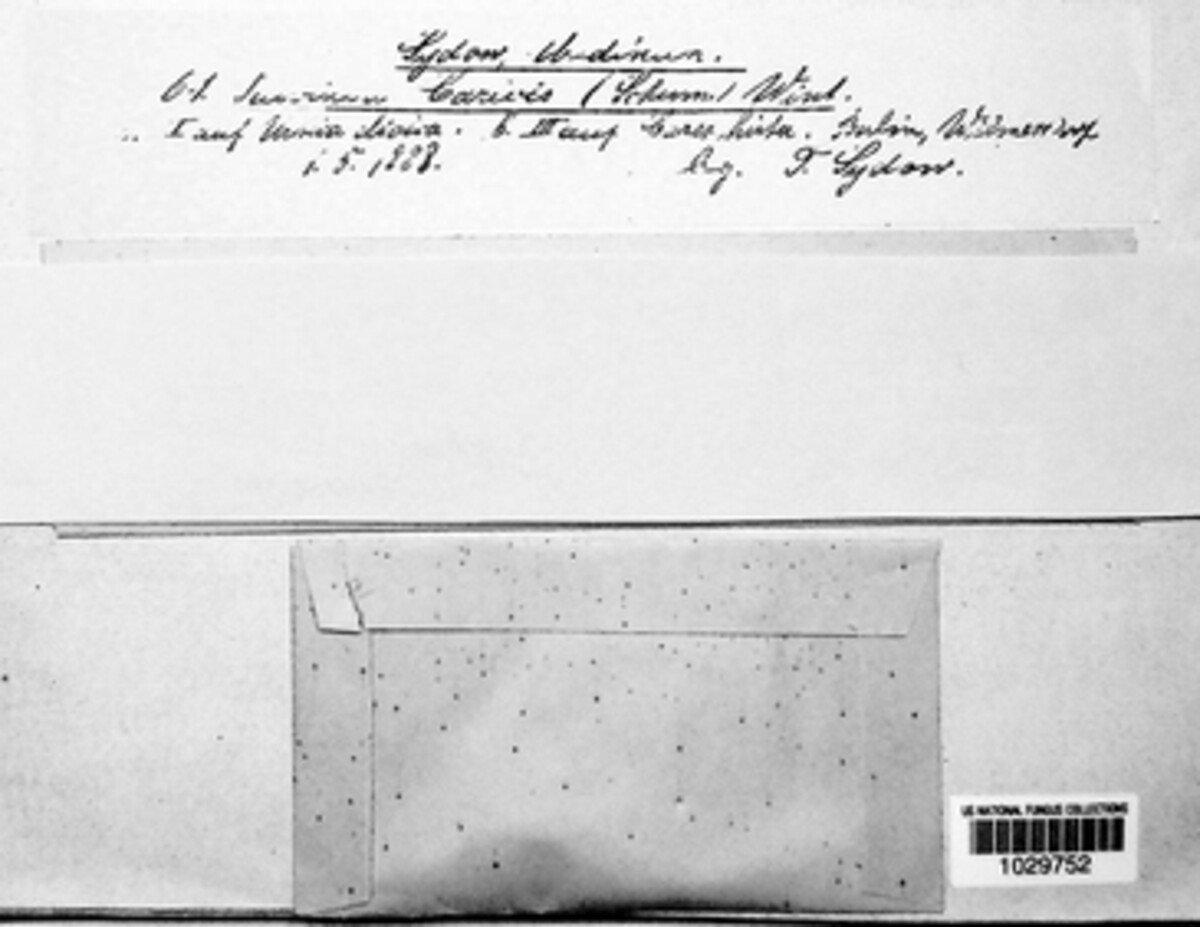 Sydow, Uredineen.
61. Puccinia Caricis (Schum.) Wint.
I auf Urtica dioica. b. III auf Carex hirta. Berlin, Wilmersdorf
5. 1888. leg. P. Sydow.
US NATIONAL FUNGUS COLLECTIONS
1029752